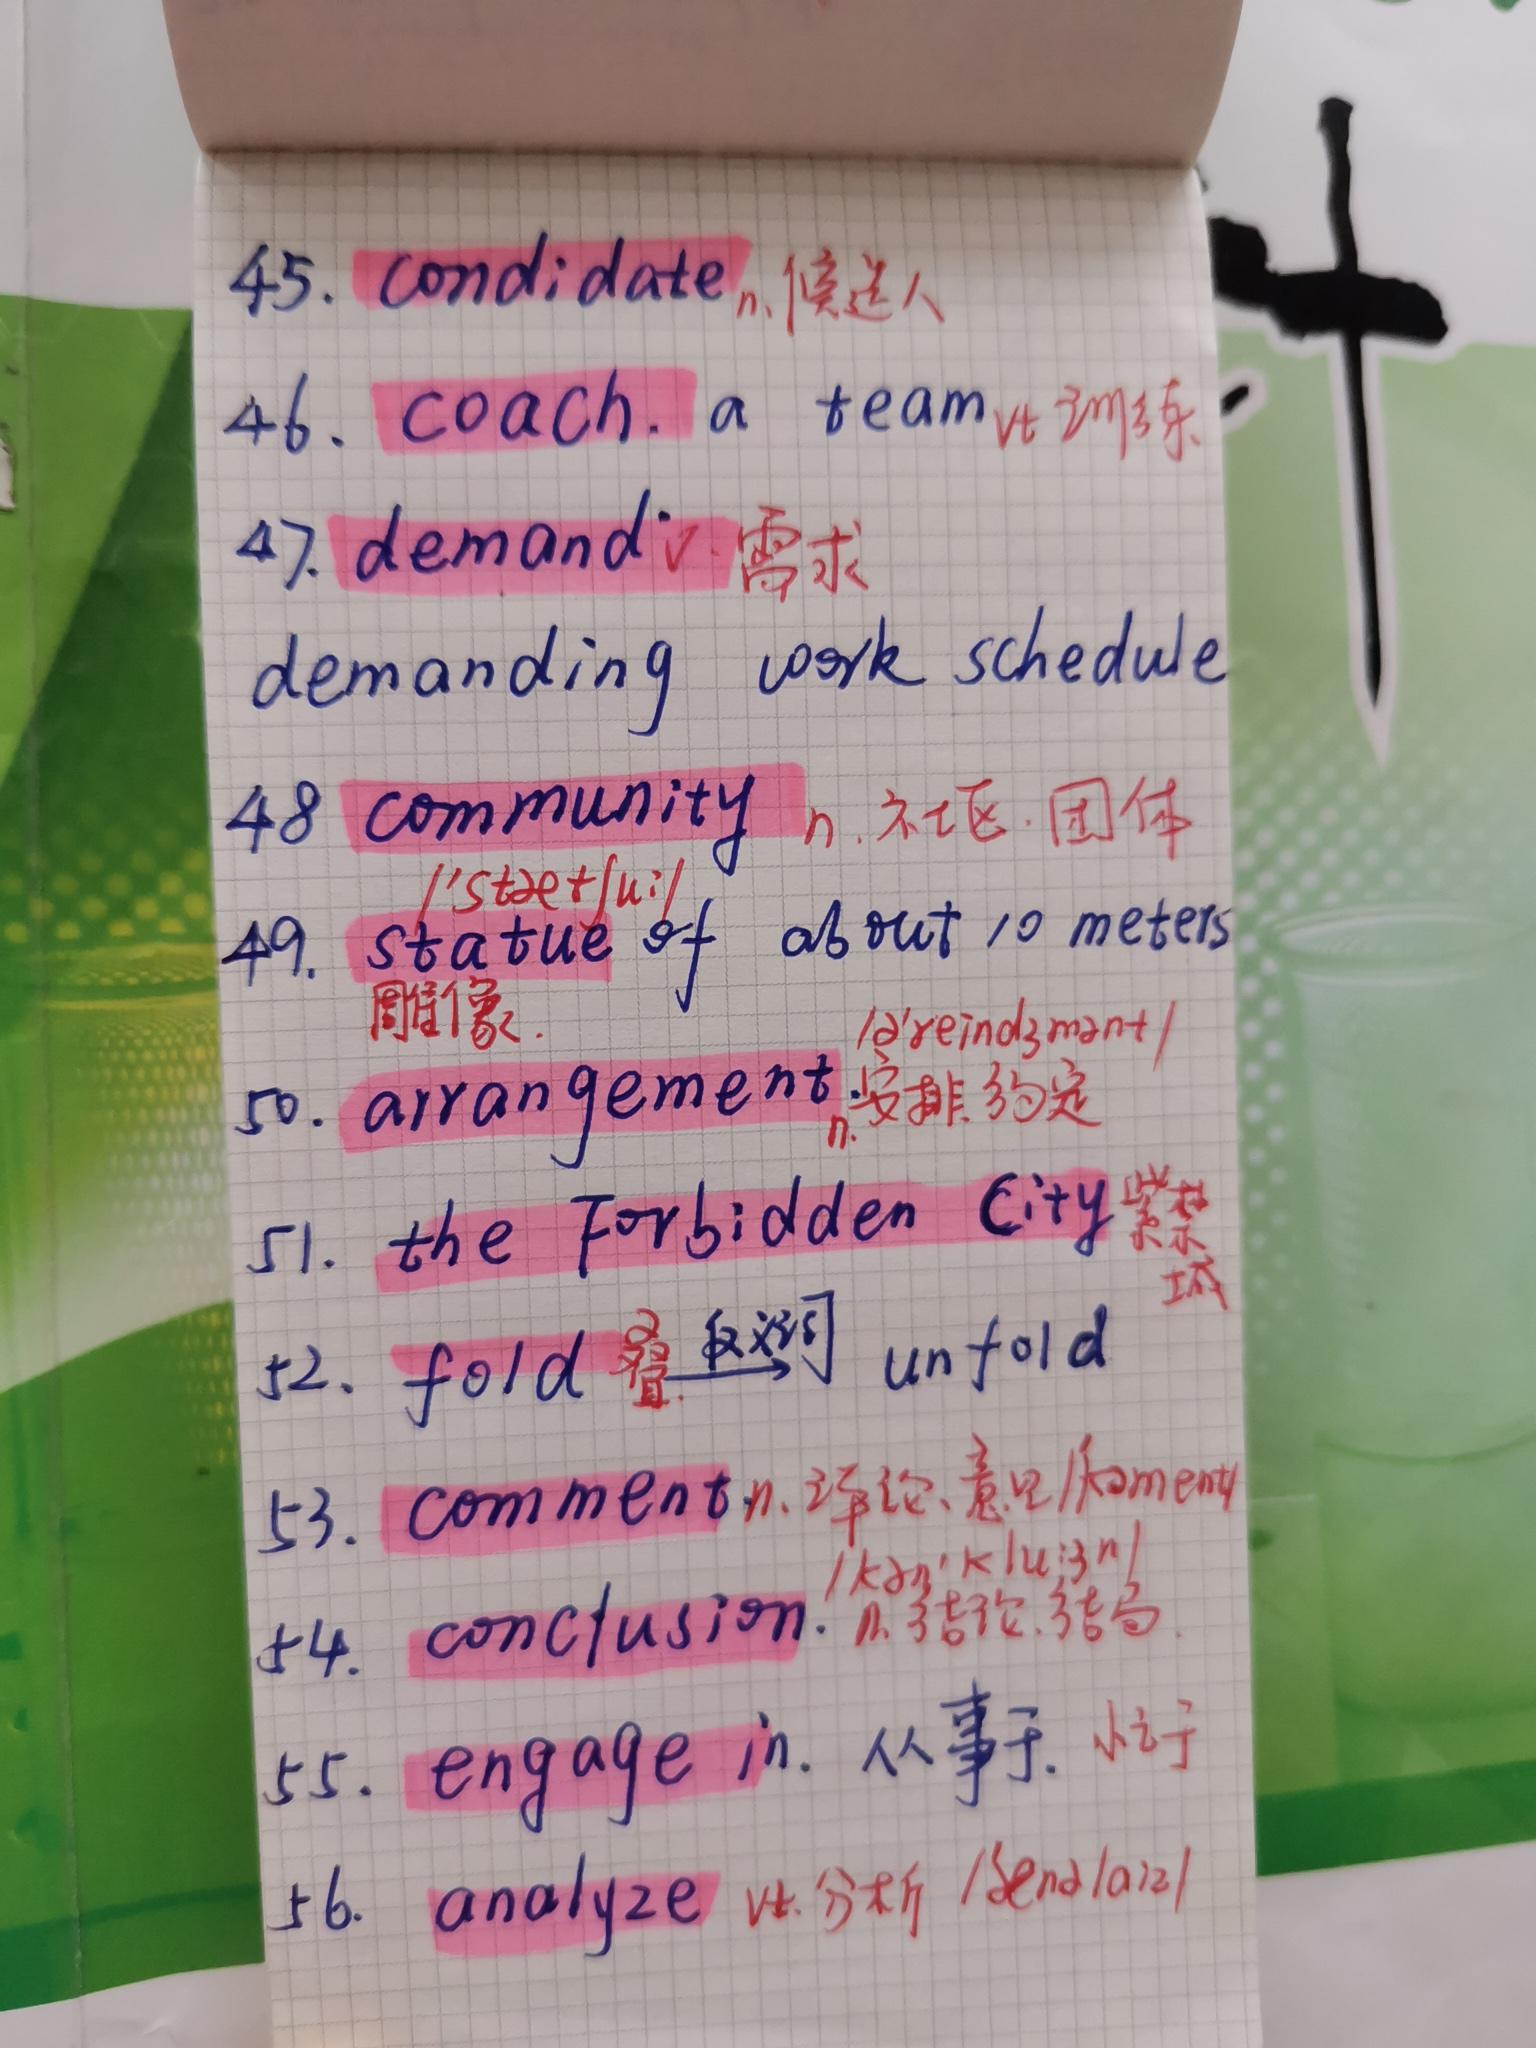 45. condidate n. 候选人
46. coach. a team vt 训练
47. demand v. 需求
demanding work schedule
48 community n. 社区. 团体
/'stætʃu:/
49. statue of about 10 meters
雕像.
/ə'reindʒmənt/
50. arrangement. n. 安排 约定
51. the Forbidden City 紫禁
城
52. fold 叠. 反义词 unfold
53. comment. n. 评论、意见 /kɑment/
/kən'klu:ʒn/
54. conclusion. n. 结论. 结局.
55. engage in. 从事于. 忙于
56. analyze vt. 分析 /'ænəlaiz/